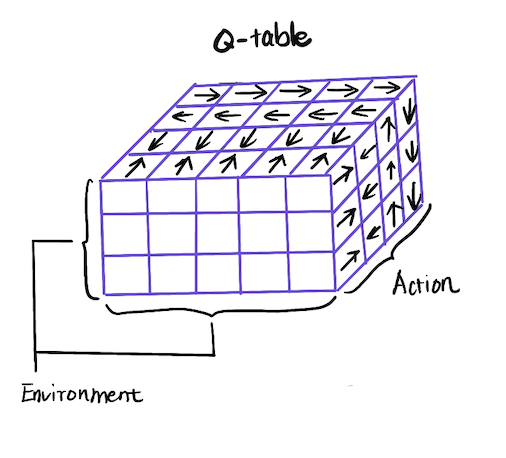 Q-table
Action
Environment